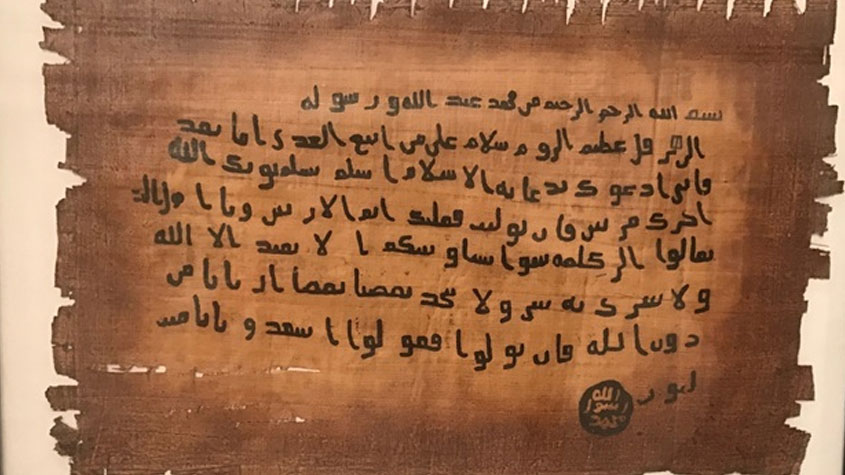 بسم الله الرحمن الرحيم من محمد عبد الله و رسوله
الى هرقل عظيم الروم سلام على من اتبع الهدى اما بعد
فاني ادعوك بدعاية الاسلام اسلم تسلم يوتك الله
اجرك مرتين فان توليت فعليك اثم الاريسين ويا اهل الكتاب
تعالوا الى كلمة سوا بيننا وبينكم الا نعبد الا الله
ولا نشرك به شيئا ولا يتخذ بعضنا بعضا اربابا من
دون الله فان تولوا فقولوا اشهدوا بانا مسـ
لمون
الله
رسول
محمد